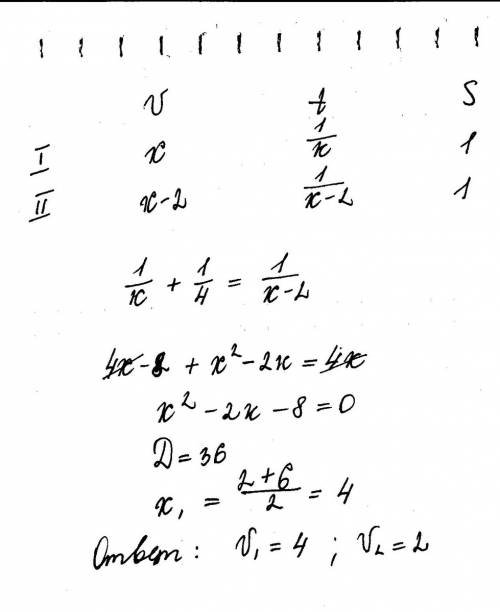 v t S
I x 1/x 1
II x-2 1/(x-2) 1
1/x + 1/4 = 1/(x-2)
4x-8 + x² - 2x = 4x
x² - 2x - 8 = 0
D = 36
x₁ = (2+6)/2 = 4
Ответ: V₁ = 4 ; V₂ = 2